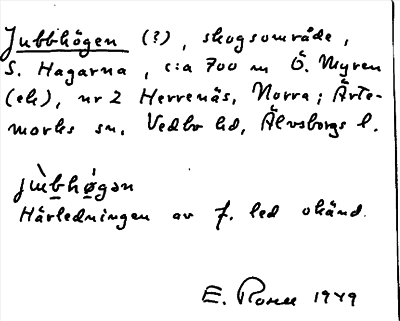 Jubbhögen (?), skogsområde,
S. Hagarna, c:a 700 m Ö. Myren
(ek), nr 2 Herrenäs, Norra; Ärte-
marks sn, Vedbo hd, Älvsborgs l.
jùbhǿgən
Härledningen av f. led okänd.
E. Rosell 1949